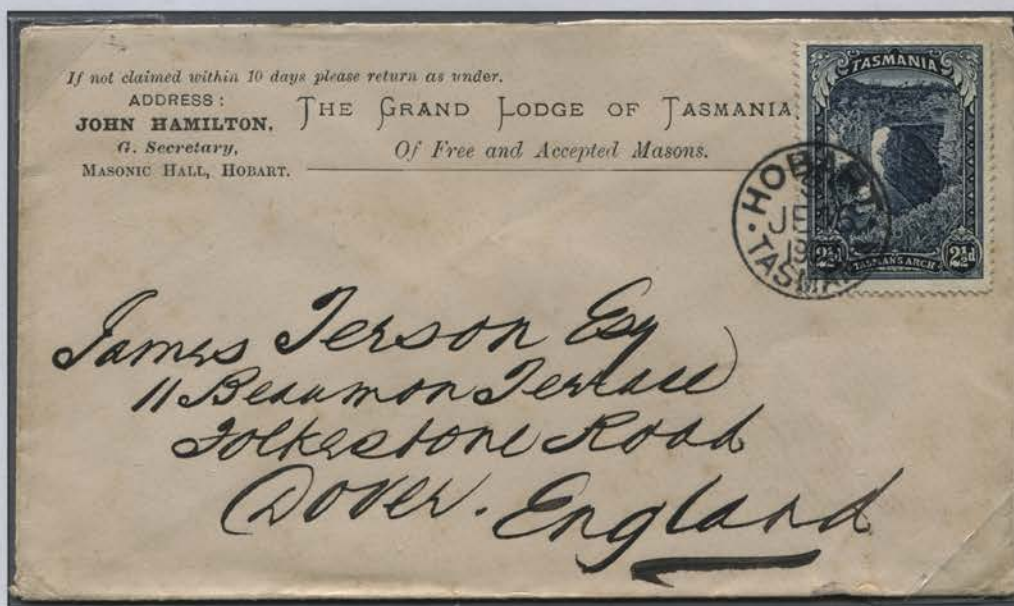 If not claimed within 10 days please return as under.
ADDRESS:
JOHN HAMILTON,
G. Secretary,
MASONIC HALL, HOBART.
THE GRAND LODGE OF TASMANIA
Of Free and Accepted Masons.
TASMANIA
2½d TASMAN'S ARCH 2½d
HOBART
TASMANIA
James Terson Esq
11 Beaumon Terrace
Folkestone Road
Dover. England